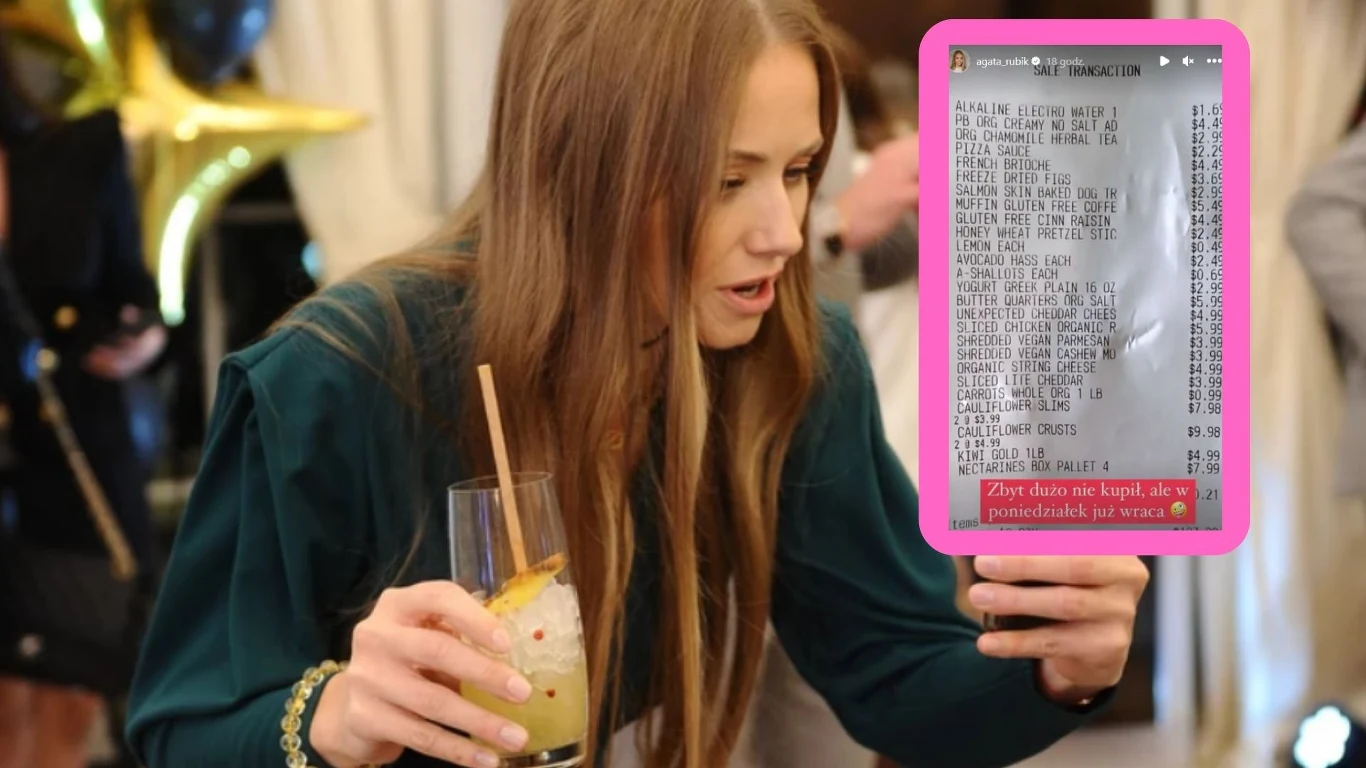 agata_rubik 18 godz.
SALE TRANSACTION
ALKALINE ELECTRO WATER 1 $1.69
PB ORG CREAMY NO SALT AD $4.49
ORG CHAMOMILE HERBAL TEA $2.99
PIZZA SAUCE $2.29
FRENCH BRIOCHE $4.49
FREEZE DRIED FIGS $3.69
SALMON SKIN BAKED DOG TR $2.99
MUFFIN GLUTEN FREE COFFE $5.49
GLUTEN FREE CINN RAISIN $4.49
HONEY WHEAT PRETZEL STIC $2.49
LEMON EACH $0.49
AVOCADO HASS EACH $2.49
A-SHALLOTS EACH $0.69
YOGURT GREEK PLAIN 16 OZ $2.99
BUTTER QUARTERS ORG SALT $5.99
UNEXPECTED CHEDDAR CHEES $4.99
SLICED CHICKEN ORGANIC R $5.99
SHREDDED VEGAN PARMESAN $3.99
SHREDDED VEGAN CASHEW MO $3.99
ORGANIC STRING CHEESE $4.99
SLICED LITE CHEDDAR $3.99
CARROTS WHOLE ORG 1 LB $0.99
CAULIFLOWER SLIMS $7.98
2 @ $3.99
CAULIFLOWER CRUSTS $9.98
2 @ $4.99
KIWI GOLD 1LB $4.99
NECTARINES BOX PALLET 4 $7.99
Zbyt dużo nie kupił, ale w
poniedziałek już wraca 🤪
0.21